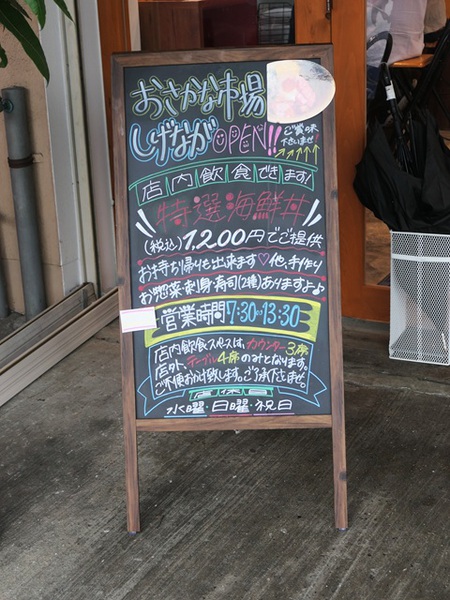 おさかな市場
しげなが OPEN!!
ご賞味
下さいませ
店内飲食できます!
特選海鮮丼
(税込)1,200円でご提供
お持ち帰りも出来ます♡他、手作り
お惣菜・刺身・寿司(2種)ありますよ♪
営業時間7:30~13:30
店内飲食スペースは、カウンター3席
店外、テーブル4席のみとなります。
ご不便お掛け致します。ご了承下さいませ。
店休日
水曜・日曜・祝日